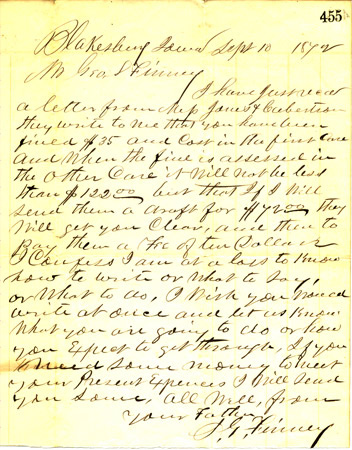 455
Blakesburg Iowa Sept 10 1872
Mr Geo S Finney
I have just recd
a letter from Jones & Culbertson
they write to me that you have been
fined $35 and Cost in the first Case
and when the fine is assessed in
the other Case it will not be less
than $122.00 but that if I will
send them a draft for $72.00 they
will get you Clear, and then to
Pay them a Fee of ten Dollars
I Confess I am at a loss to Know
how to write or what to say,
or what to do, I wish you would
write at once and let us Know
what you are going to do or how
you Expect to get through, if you
Need some money to meet
your Present Expences I will send
you some, all well, from
your Father
J. G. Finney